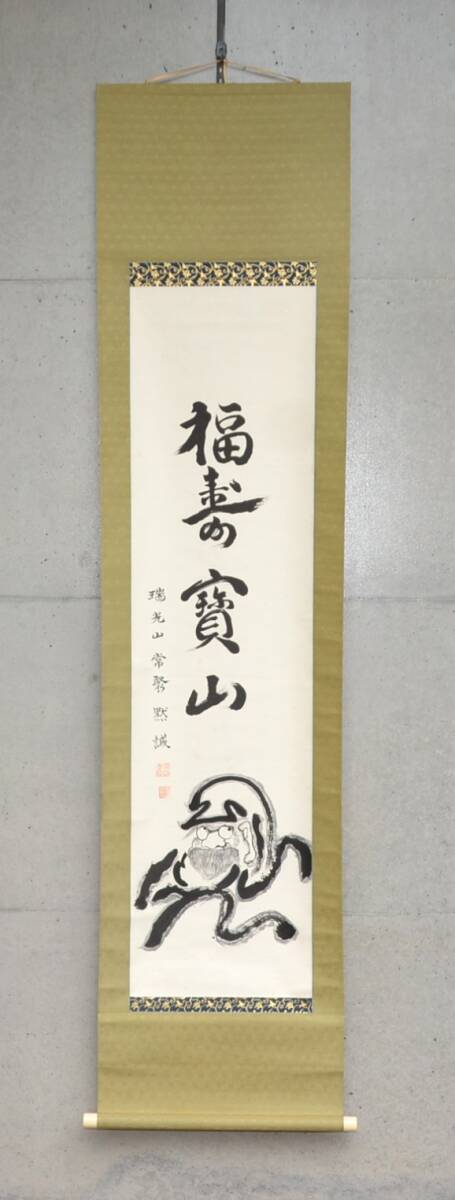 福寿寶山
瑞光山常聚默誠